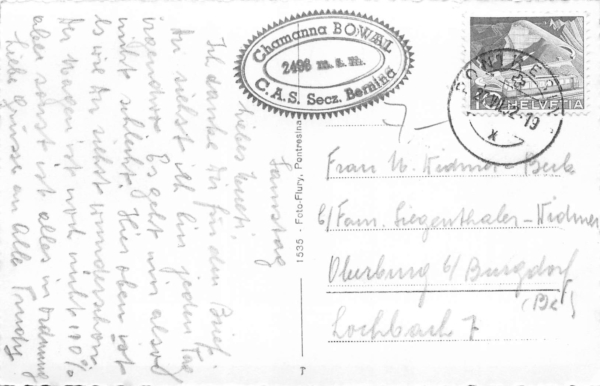 Chamanna BOVAL
2496 m. s. m.
C. A. S. Secz. Bernina
HELVETIA
Samstag
Liebes Muetti.
Ich danke dir für den Brief
Du siehst ich bin jeden Tag
irgendwo. Es geht mir also
nicht schlecht. Hier oben ist
es wie du siehst wunderschön.
Der Magen ist noch nicht 100%
aber sonst ist alles in Ordnung
Liebe Grüsse an Alle Trudy
1535 - Foto-Flury, Pontresina
Frau M. Widmer-Beck
c/ Fam. Siegenthaler-Widmer
Oberburg b/Burgdorf
(Be)
Lochbach 7